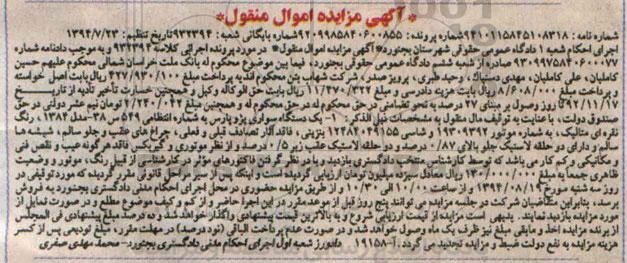 * آگهی مزایده اموال منقول*
شماره نامه : ۹۴۱۰۱۱۵۸۴۵۱۰۸۳۱۸ شماره پرونده : ۹۲۰۹۹۸۵۸۴۰۶۰۰۸۵۵ شماره بایگانی شعبه : ۹۳۲۳۹۴ تاریخ تنظیم : ۱۳۹۴/۷/۲۳
اجرای احکام شعبه ۱ دادگاه عمومی حقوقی شهرستان بجنورد* آگهی مزایده اموال منقول* در مورد پرونده اجرائی کلاسه ۹۳۲۳۹۴ و به موجب دادنامه شماره
۹۳۰۹۹۷۵۸۴۰۶۰۰۰۷۷ صادره از شعبه ششم دادگاه عمومی حقوقی بجنورد، فیما بین موضوع محکوم له بانک ملت خراسان شمالی محکوم علیهم حسین
کاملیان، علی کاملیان، مهدی دستیاک، وحید طیری، پرویز صدر، شرکت شهاب بتن محکوم اند به پرداخت مبلغ ۴۲۷/۹۳۰/۱۰۰ ریال بابت اصل خواسته
و پرداخت مبلغ ۸/۶۰۸/۰۰۰ ریال بابت هزینه دادرسی و مبلغ ۱۱/۲۷۰/۳۲۲ ریال بابت حق الوکاله وکیل و همچنین خسارت تأخیر تادیه از تاریخ
۹۲/۱۱/۱۷ تا روز وصول بر مبنای ۲۷ درصد به نحو تضامنی در حق محکوم له در حق محکوم له و همچنین مبلغ ۲/۲۴۰/۰۴۲ تومان نیم عشر دولتی در حق
صندوق دولت، با عنایت به توقیف مال منقول به مشخصات ذیل الذکر: ۱- یک دستگاه سواری پژو پارس به شماره انتظامی ۵۴۹ س ۳۸- مدل ۱۳۸۴، رنگ
نقره ای متالیک، به شماره موتور ۱۹۳۰۹۳۹۲ و شاسی ۱۲۴۸۴۰۴۹۱۵۵ بنزینی، فاقد آثار تصادف قبلی و فعلی، چراغ های عقب و جلو سالم، شیشه ها
سالم و دارای دو حلقه لاستیک جلو بالای ۸۷/۰ درصد و دو حلقه لاستیک عقب زیر ۰/۵ درصد و از نظر موتوری و گیربکس فاقد هرگونه عیب و نقص فنی
و مکانیکی و کم کار می باشد که توسط کارشناس منتخب دادگستری بازدید و با در نظر گرفتن فاکتورهای مؤثر در کارشناسی از قبیل رنگ، موتور و وضعیت
ظاهری جمعاً به مبلغ ۱۳۰/۰۰۰/۰۰۰ ریال معادل سیزده میلیون تومان ارزیابی گردیده است و اینکه به تجویز سایر مراحل قانونی مقرر گردیده که مورد توقیفی در
روز سه شنبه مورخ ۱۳۹۴/۰۸/۱۹ از ساعت ۱۰/۰۰ الی ۱۰/۳۰ و از طریق مزایده حضوری در محل اجرای احکام مدنی دادگستری بجنورد به فروش
برسد، بنابراین متقاضیان شرکت در جلسه مزایده می توانند پنج روز قبل از موعد مقرر در این اجرا حاضر و از کم و کیف موضوع مطلع و در صورت تمایل از
مورد مزایده بازدید نمایند. بدیهی است مزایده از قیمت ارزیابی شروع و به بالاترین قیمت پیشنهادی واگذار خواهد شد و ده درصد مبلغ پیشنهادی فی المجلس
از برنده مزایده اخذ و مابقی مبلغ نیز ظرف یک ماه وصول خواهد شد و در صورت عدم پرداخت الباقی (نود درصد) در مهلت مقرر، مبلغ تودیعی پس از کسر
هزینه مزایده به نفع دولت ضبط و مزایده تجدید می گردد. آ-۱۹۱۵۸ دادورز شعبه اول اجرای احکام مدنی دادگستری بجنورد- محمد مهدی صفری